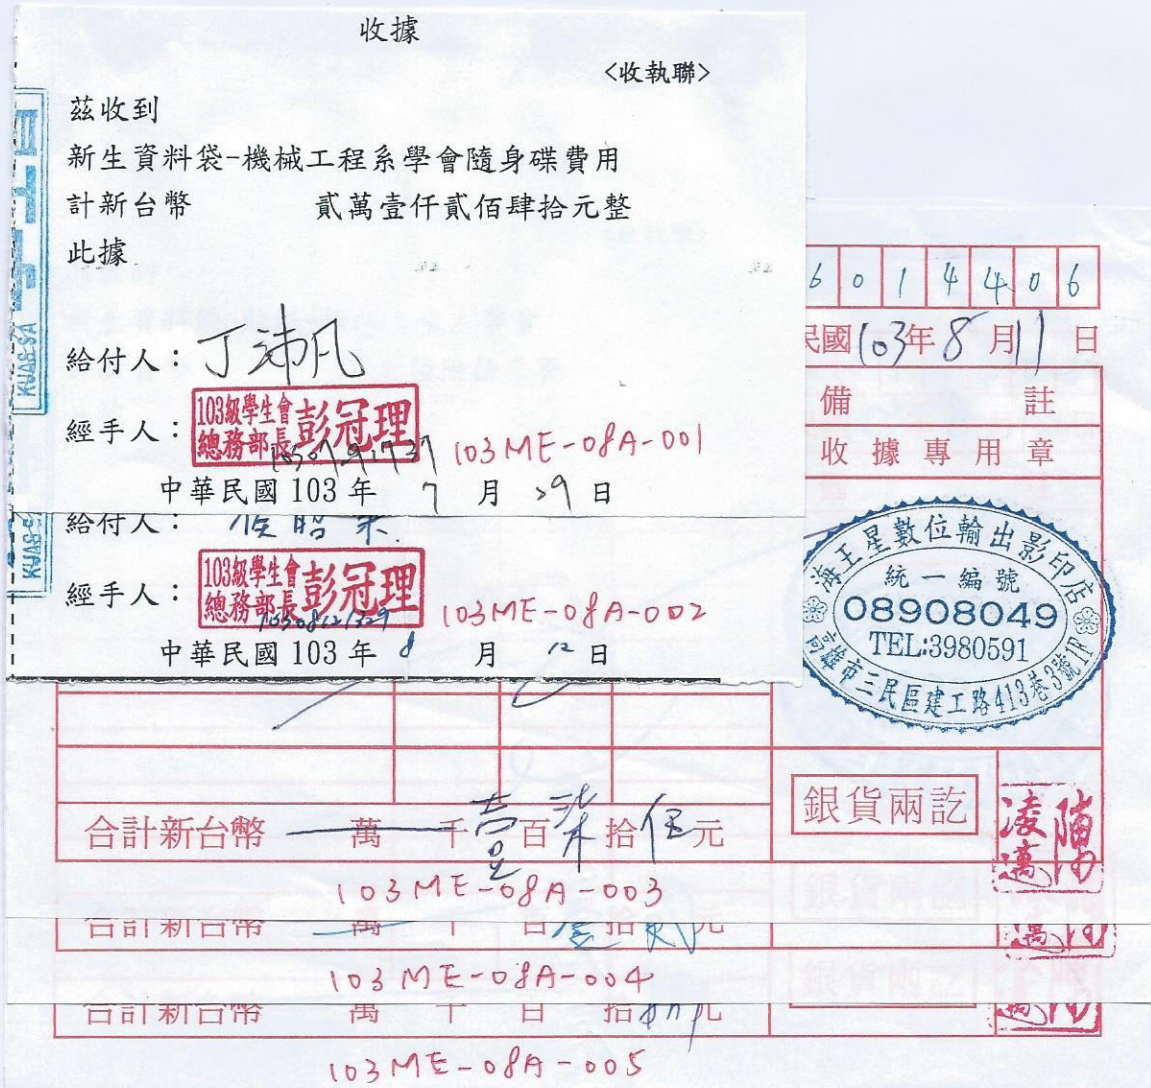 收據
<收執聯>
茲收到
新生資料袋-機械工程系學會隨身碟費用
計新台幣 貳萬壹仟貳佰肆拾元整
此據
KUAS-SA
給付人：丁沛凡
經手人：103級學生會總務部長彭冠理
103ME-08A-001
中華民國 103 年 7 月 29 日
給付人：
KUAS-S
經手人：103級學生會總務部長彭冠理
103ME-08A-002
中華民國 103 年 8 月 12 日
6 0 1 4 4 0 6
民國103年8月11日
備註
收據專用章
海王星數位輸出影印店
統一編號
08908049
TEL:3980591
高雄市三民區建工路413巷3號1F
合計新台幣 萬 千壹百柒拾伍元
銀貨兩訖
103ME-08A-003
合計新台幣 萬 千 百壹拾貳元
103ME-08A-004
合計新台幣 萬 千 百 拾 元
103ME-08A-005